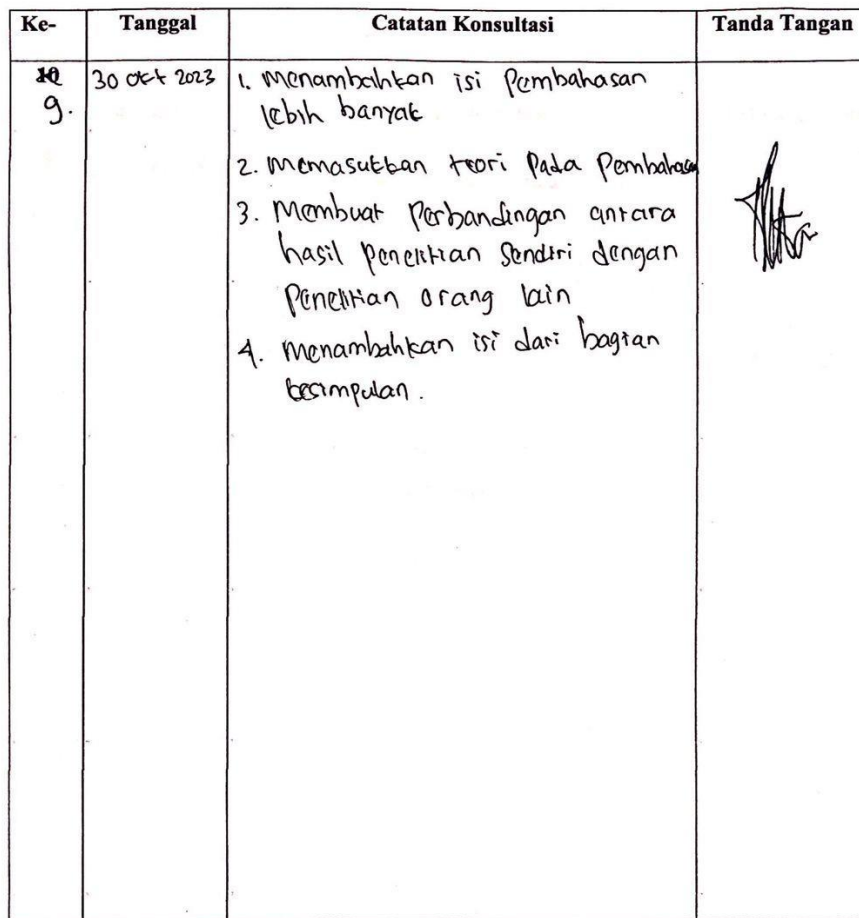 Ke- Tanggal Catatan Konsultasi Tanda Tangan
9. 30 Okt 2023 1. Menambahkan isi Pembahasan
lebih banyak
2. Memasukkan teori Pada Pembahasan
3. Membuat Perbandingan antara
hasil penelitian Sendiri dengan
Penelitian orang lain
4. Menambahkan isi dari bagian
kesimpulan.